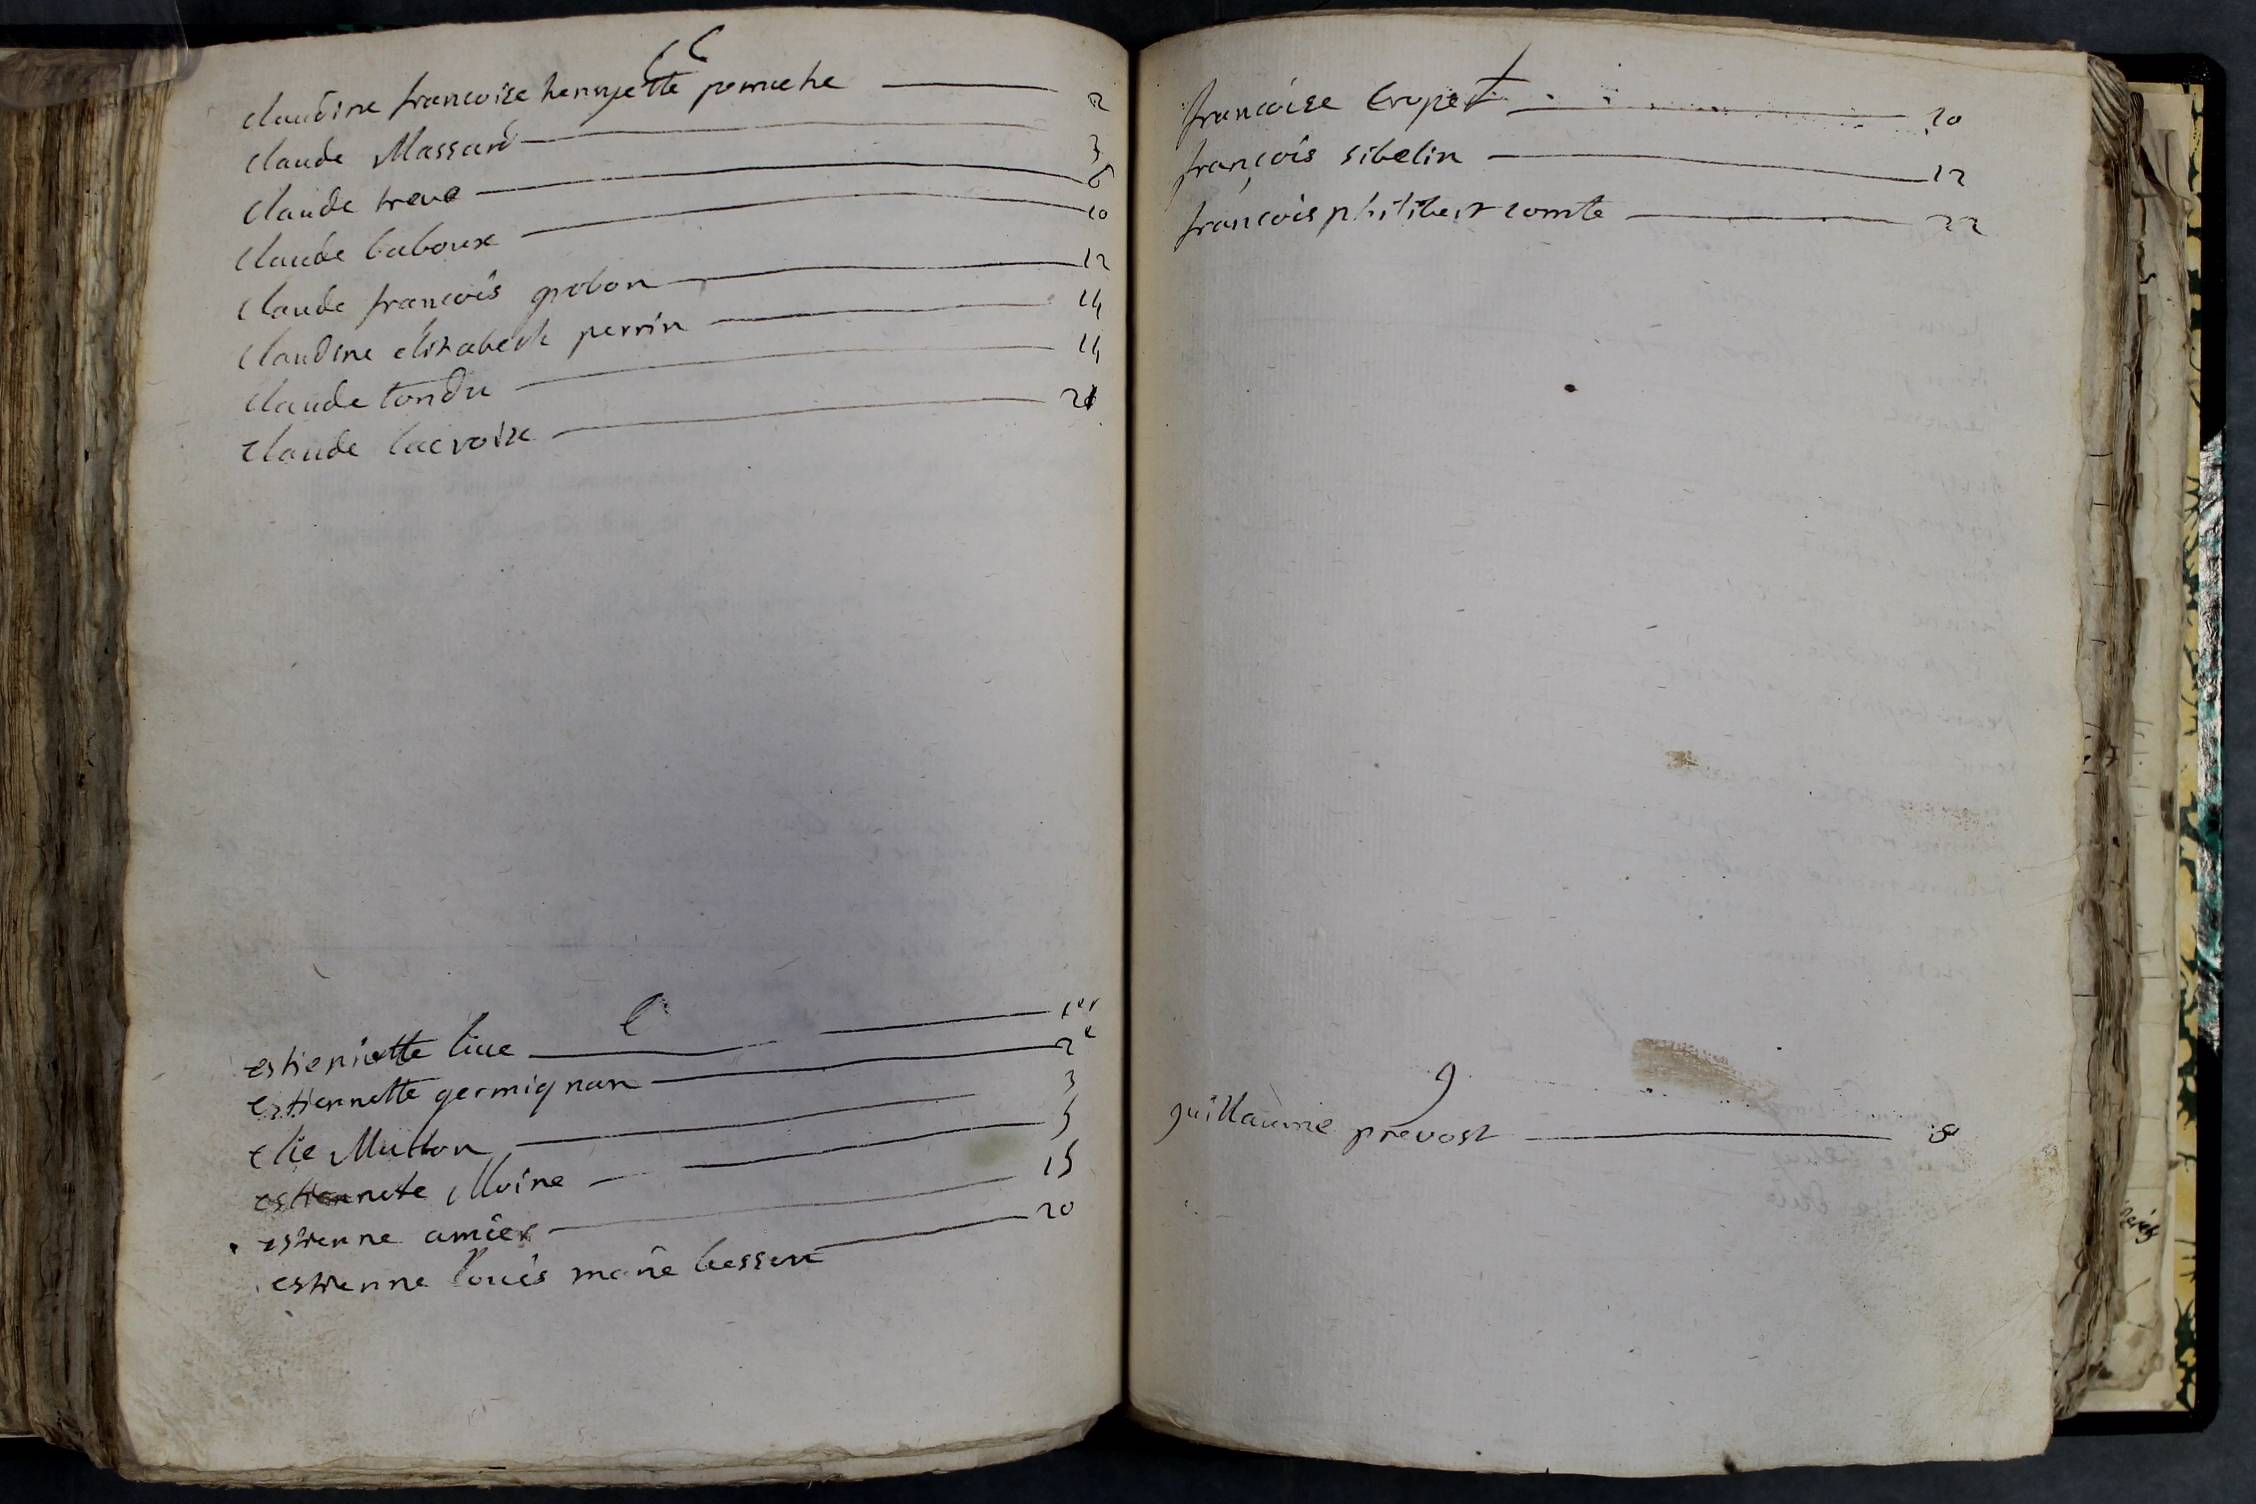 C
claudine francoise henryette perruche 2
claude Massard 3
claude treve 6
claude baboux 10
claude francois grobon 12
claudine elizabeth perrin 14
claude tondu 14
claude lacroix 21
e
estiennette live 1er
estiennette germignan 2e
elie Mutton 3
estiennete Moine 5
estienne amier 15
estienne louis marie besson 20
f
francoise Crepet 10
françois sibelin 12
francois philibert comte 22
g
guillaume prevost 8